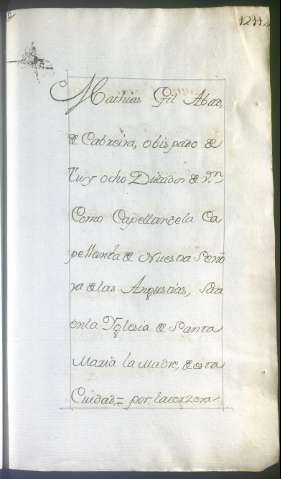 1211
Mathias Gil Abad,
de Cabreira, obispado de
Tuy ocho Ducados de rn
Como Capellan de la Ca
pellanía de Nuestra Seño
ra de las Angustias, Sita
en la Iglesia de Santa
Maria la Madre, de esta
Ciudad, = por la